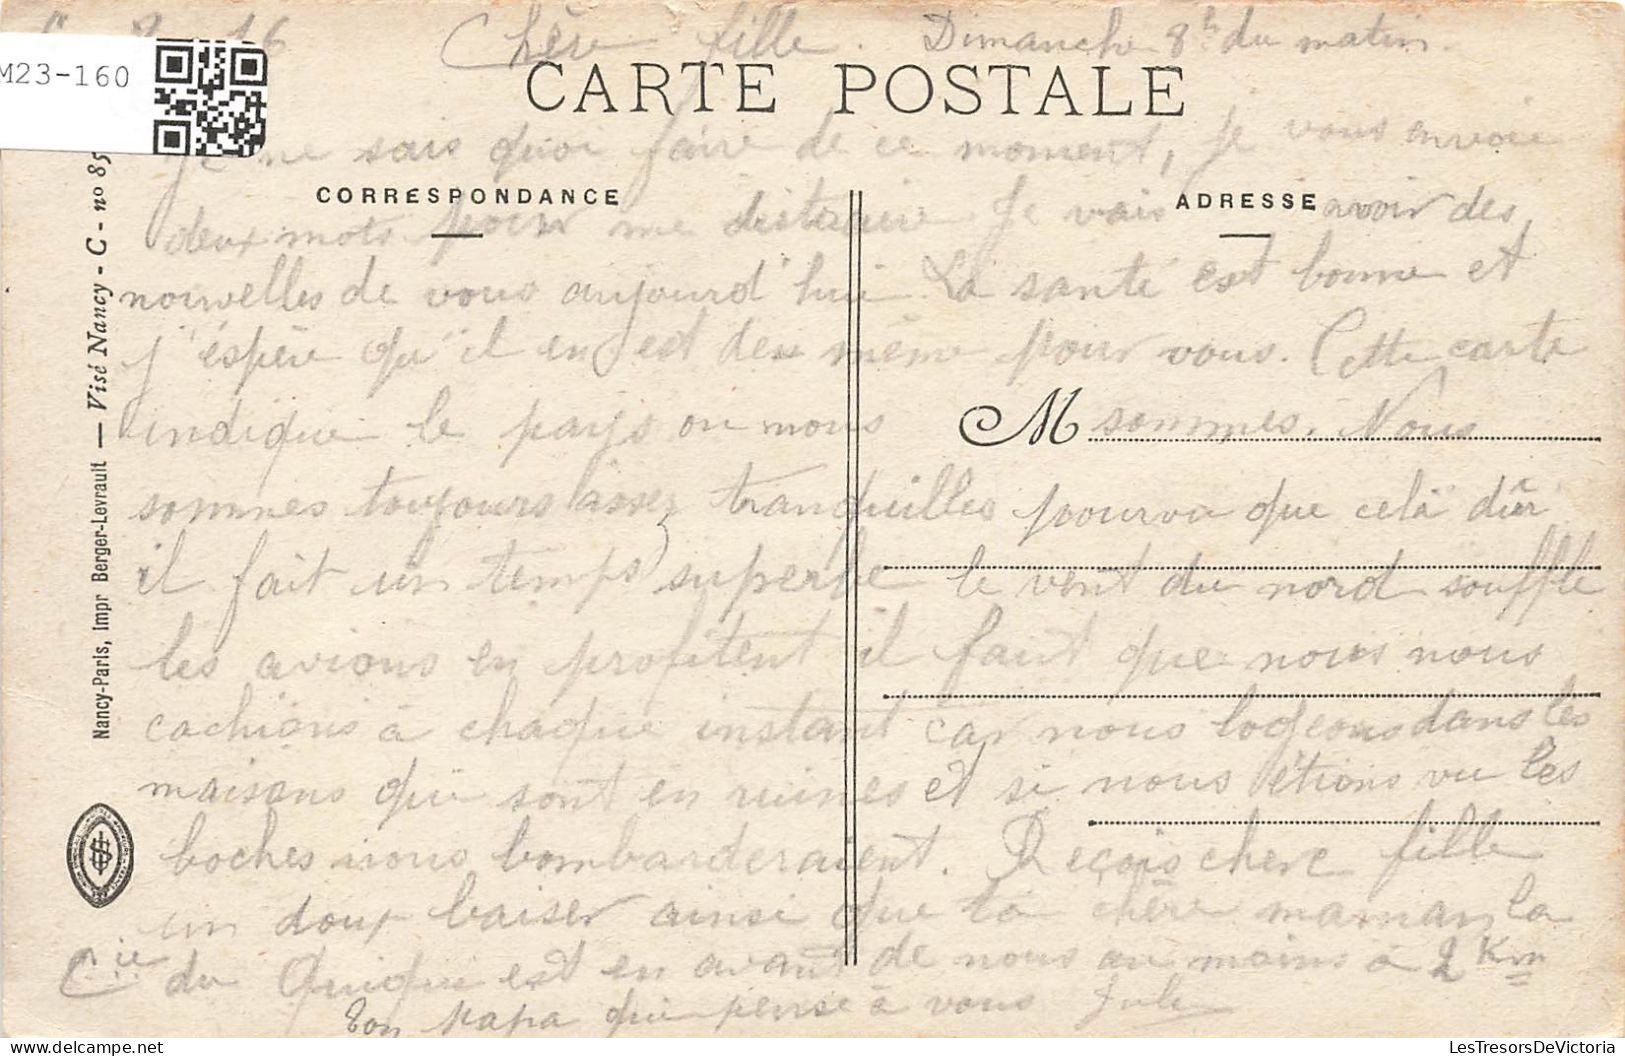 16 Chère fille. Dimanche 8h du matin.
M23-160
CARTE POSTALE
Je ne sais quoi faire de ce moment, je vous envoie
CORRESPONDANCE
ADRESSE
deux mots pour me distraire. Je vais avoir des
nouvelles de vous aujourd'hui. La santé est bonne et
j'éspère qu'il en est de même pour vous. Cette carte
indique le pays ou nous sommes. Nous
M
sommes toujours assez tranquilles pourvu que celà dûr
il fait un temps superbe le vent du nord souffle
les avions en profitent il faut que nous nous
cachions à chaque instant car nous logeons dans les
maisons qui sont en ruines et si nous étions vu les
boches nous bombarderaient. Reçois chere fille
un doux baiser ainsi que ta chère maman la
Cie du Quiqui est en avant de nous au moins à 2 Km
Ton papa qui pense à vous Jules
Nancy-Paris, Impr Berger-Levrault — Visé Nancy - C - no 85
LesTresorsDeVictoria